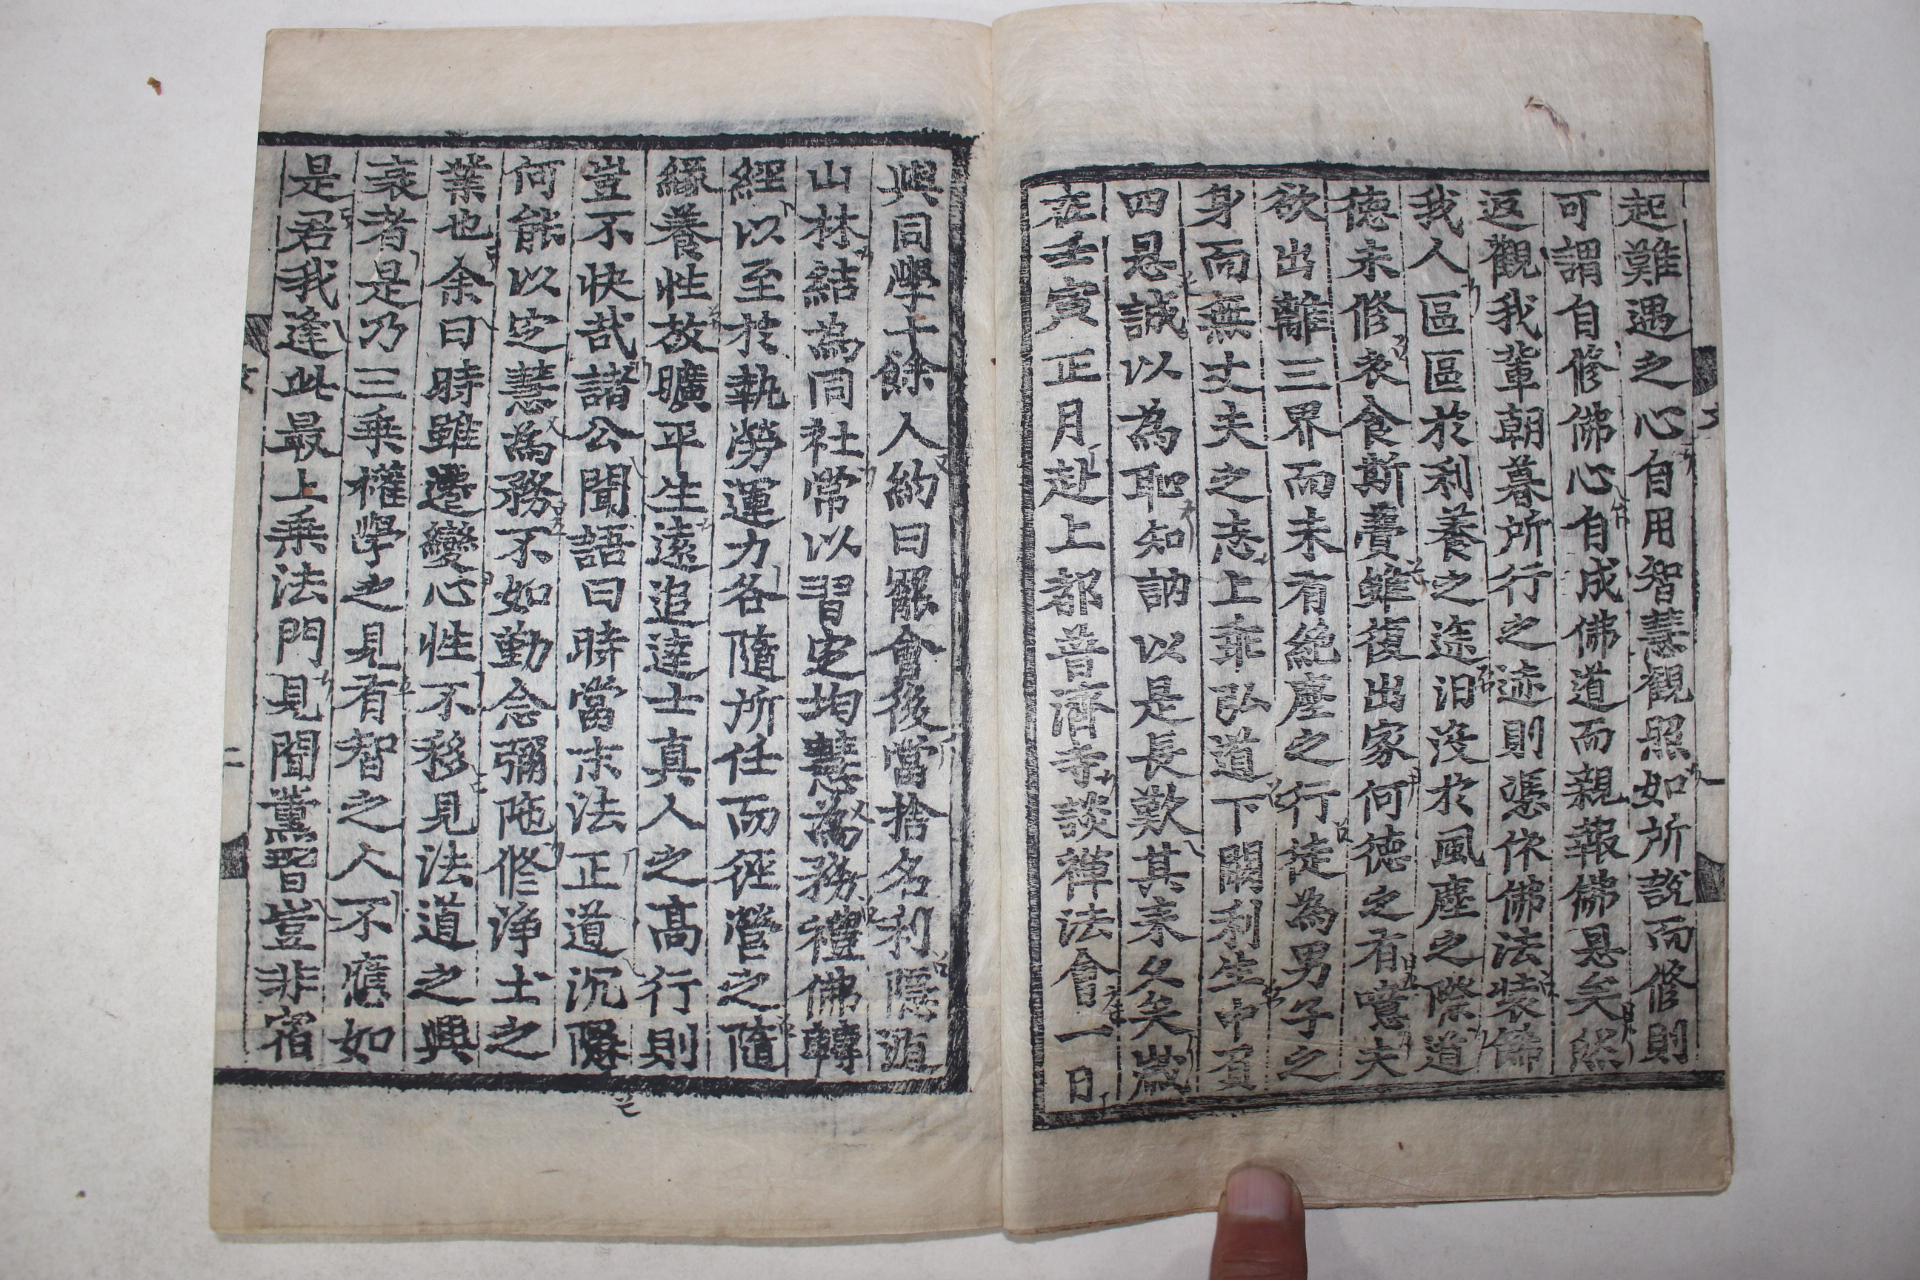 起難遇之心自用智慧觀照如所說而修則
可謂自修佛心自成佛道而親報佛恩矣然
返觀我輩朝暮所行之迹則憑依佛法裝飾
我人區區於利養之途汨没於風塵之際道
德未修衣食斯費雖復出家何德之有噫夫
欲出離三界而未有絶塵之行徒為男子之
身而無丈夫之志上乖弘道下闕利生中負
四恩誠以為恥知訥以是長歎其来久矣歲
在壬寅正月赴上都普濟寺談禪法會一日
與同學十餘人約曰罷會後當捨名利隱遁
山林結為同社常以習定均慧為務禮佛轉
經以至於執勞運力各隨所任而經營之隨
緣養性放曠平生遠追達士真人之高行則
豈不快哉諸公聞語曰時當末法正道沉隱
何能以定慧為務不如勤念彌陁修淨土之
業也余曰時雖遷變心性不移見法道之興
衰者是乃三乘權學之見有智之人不應如
是君我逢此最上乘法門見聞薰習豈非宿
二